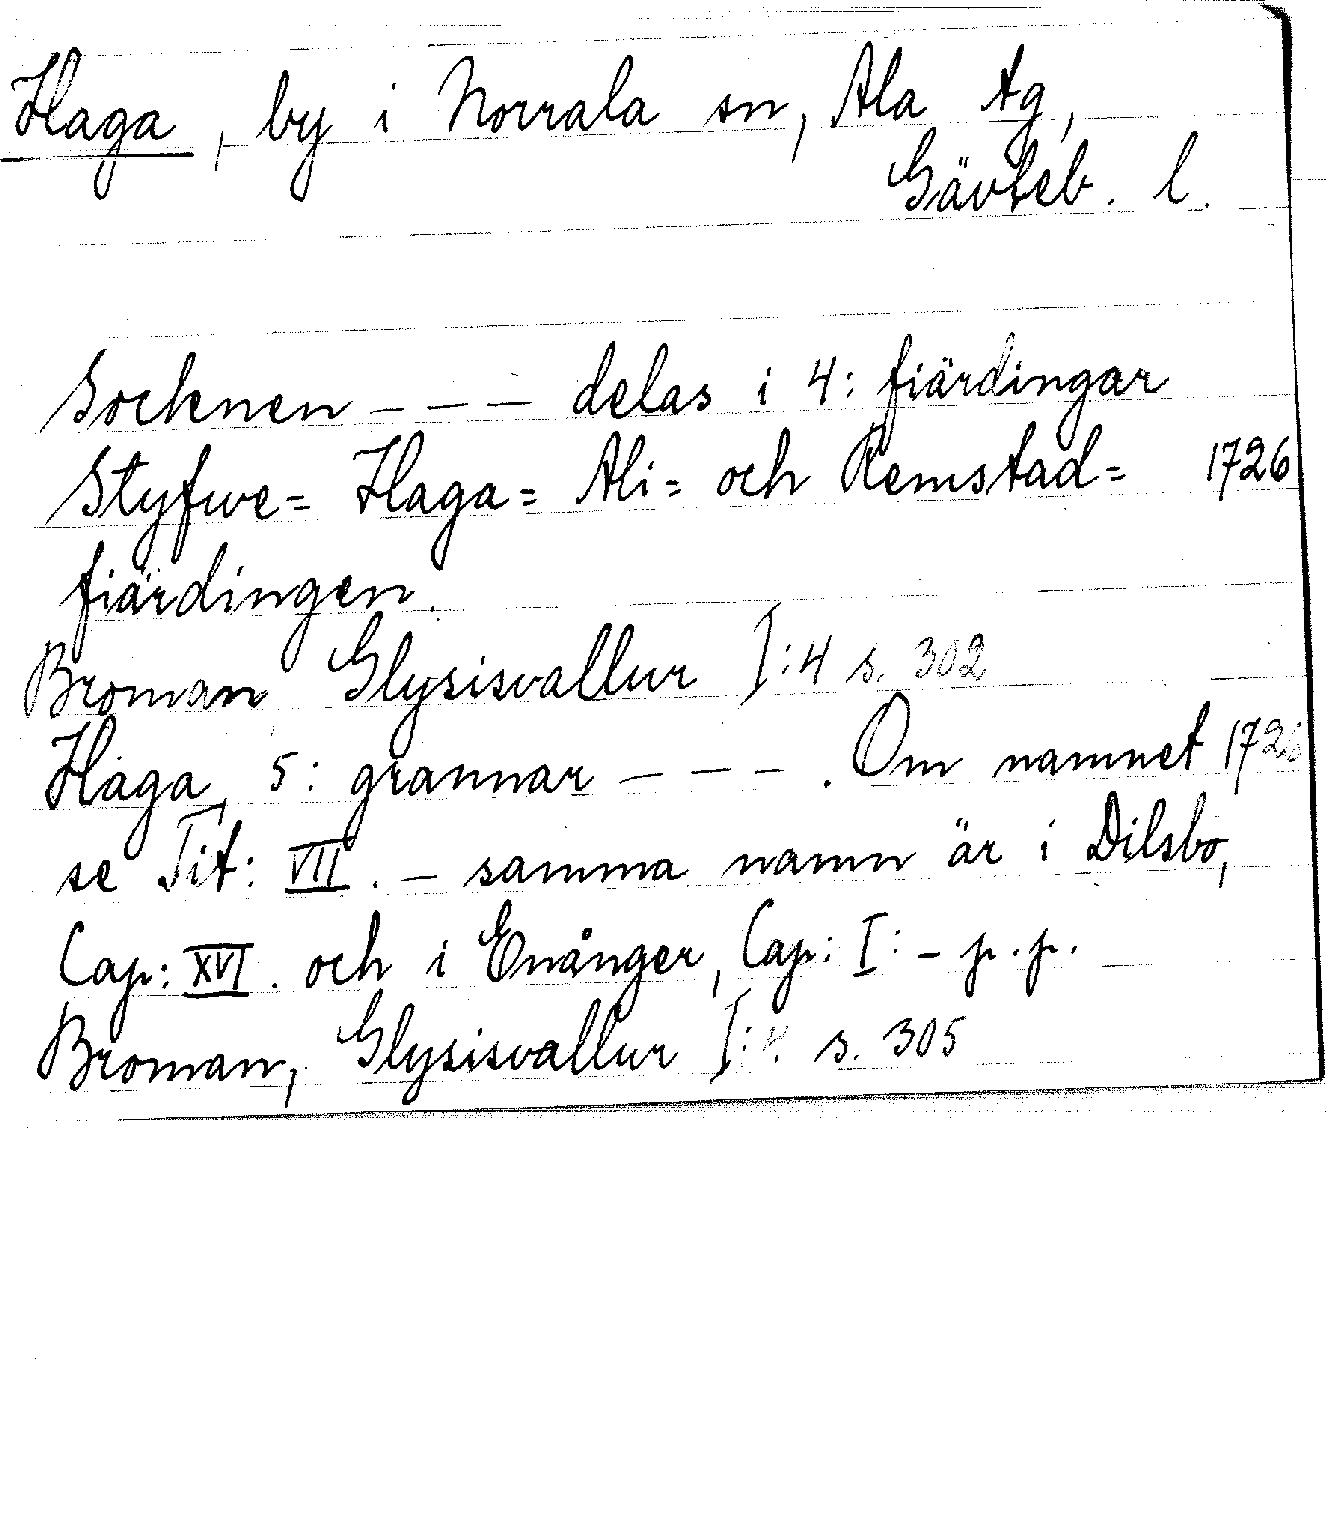 Haga, by i Norrala sn, Ala tg,
Gävleb. l.
Socknen - - - delas i 4: fiärdingar
Styfwe= Haga= Ali= och Remstad= 1726
fiärdingen.
Broman Glysisvallur I:4 s. 302
Haga, 5: grannar - - - . Om namnet 1726
se Tit: VII. - samma namn är i Dilsbo,
Cap: XVI. och i Enånger, Cap: I: - p.p.
Broman, Glysisvallur I:4. s. 305